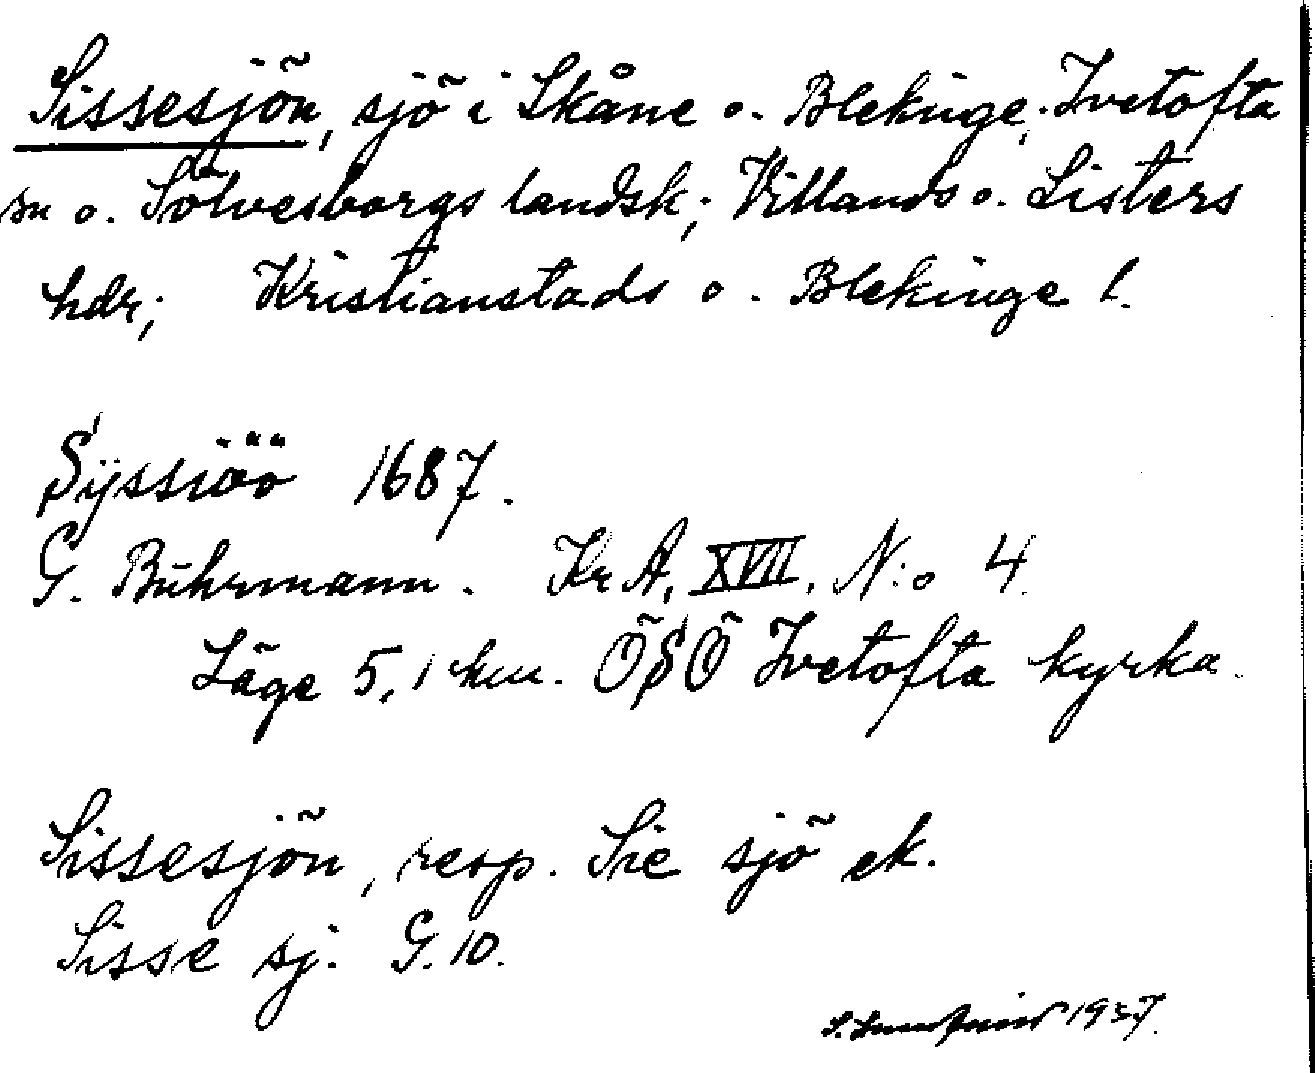 Sissesjön, sjö i Skåne o. Blekinge; Ivetofta
sn o. Sölvesborgs landsk; Villands o. Listers
hdr; Kristianstads o. Blekinge l.
Sÿssiöö 1687.
G. Buhrmann. Kr A, XVII, N:o 4.
Läge 5,1 km. ÖSÖ Ivetofta kyrka.
Sissesjön, resp. Sie sjö ek.
Sisse sj. G. 10.
1937.